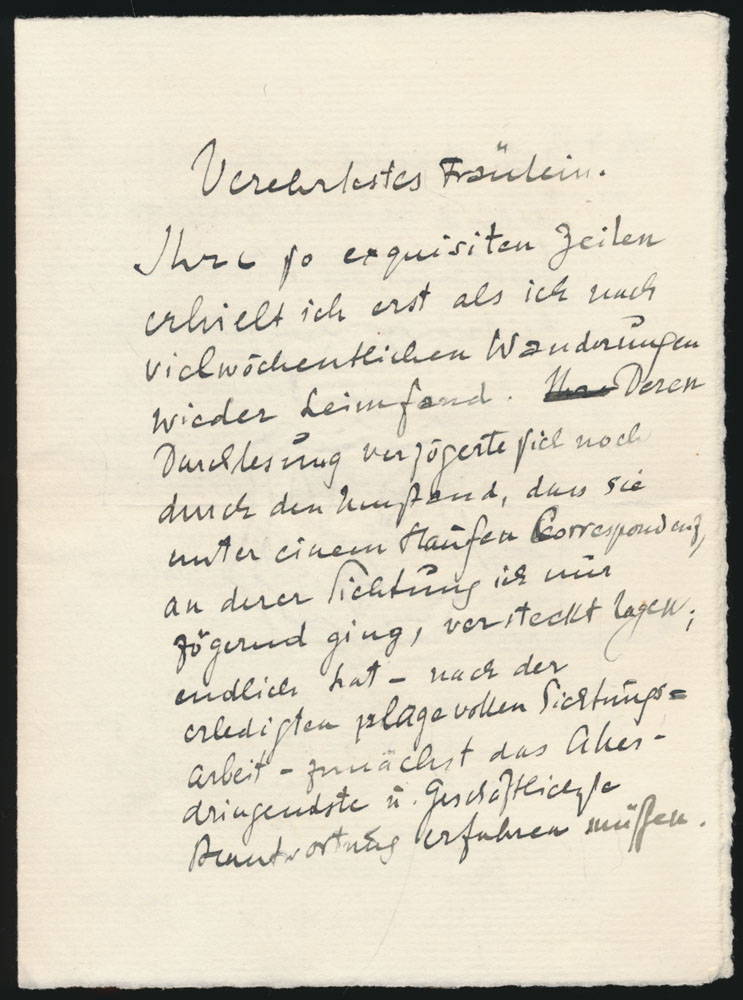 Verehrtestes Fräulein.
Ihre so exquisiten Zeilen
erhielt ich erst als ich nach
vielwöchentlichen Wanderungen
wieder heimfand. Ihre Deren
Durchlesung verzögerte sich noch
durch den Umstand, dass sie
unter einem Haufen Correspondenz,
an derer Sichtung ich nur
zögernd ging, versteckt lagen;
endlich hat – nach der
erledigten plagevollen Sichtungs=
arbeit – zunächst das Aller-
dringendste u. Geschäftlichste
Beantwortung erfahren müssen.